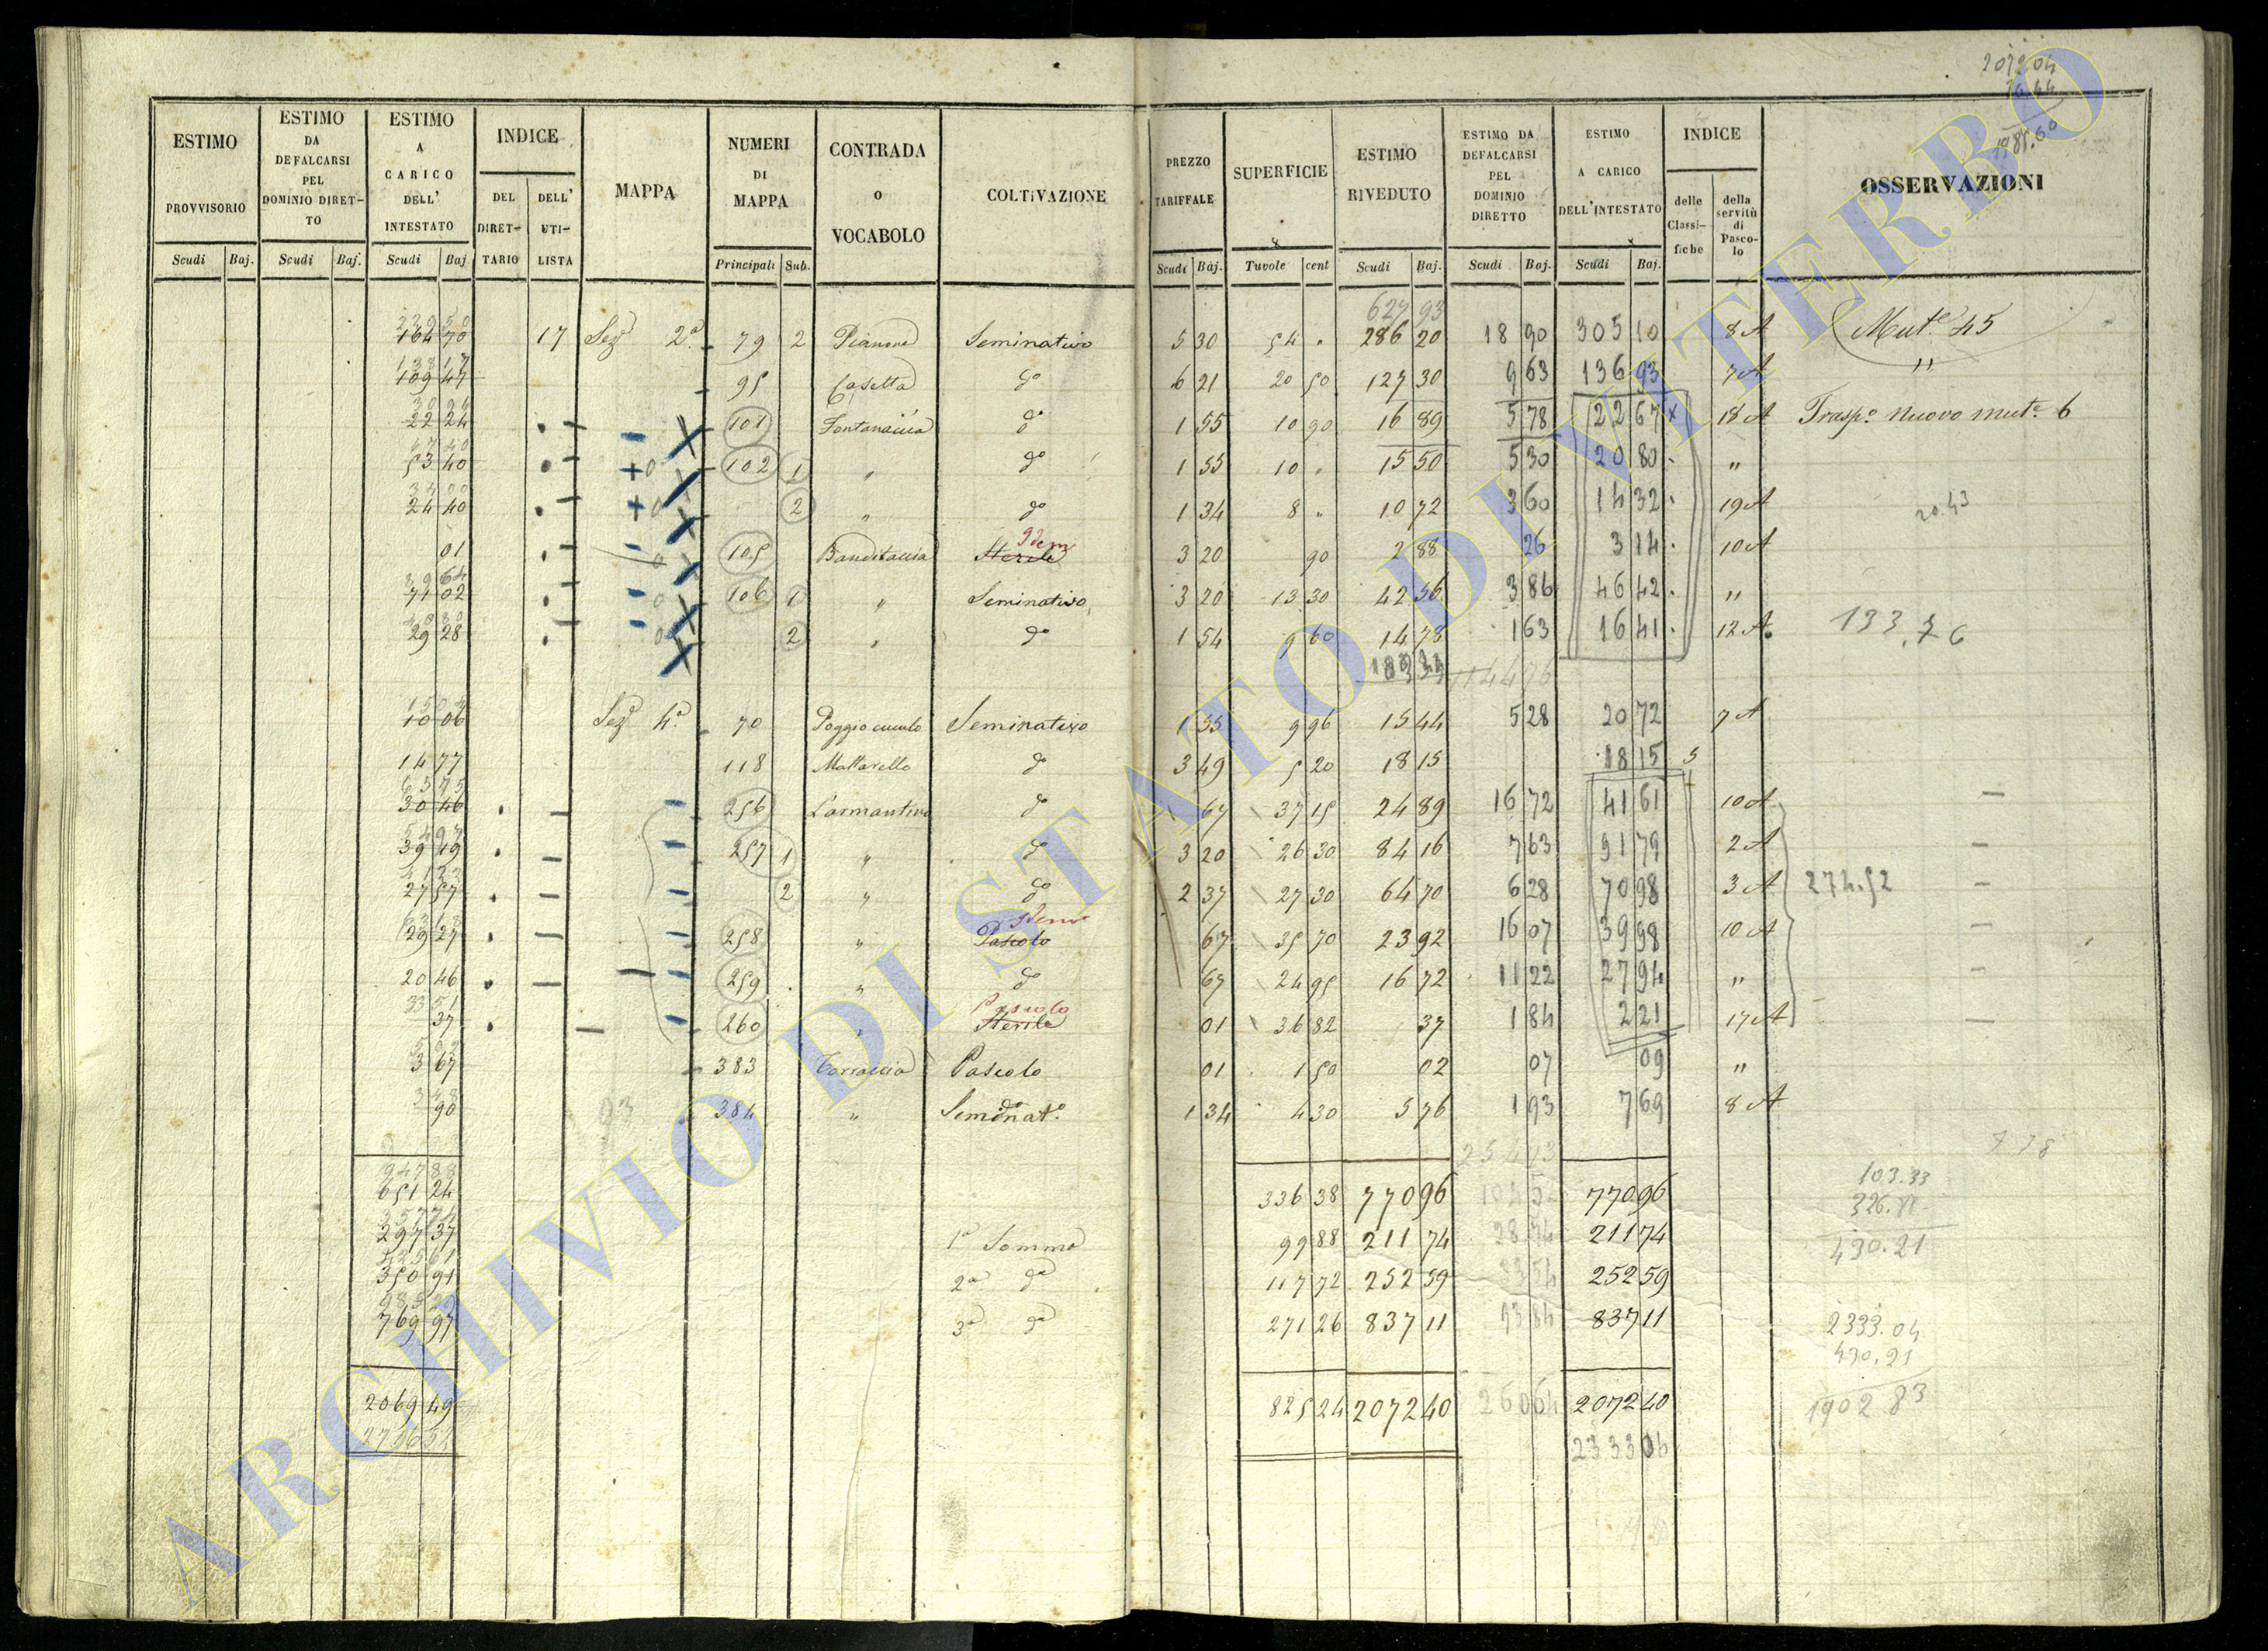 ESTIMO PROVVISORIO | ESTIMO DA DEFALCARSI PEL DOMINIO DIRETTO | ESTIMO A CARICO DELL' INTESTATO | INDICE | MAPPA | NUMERI DI MAPPA | CONTRADA o VOCABOLO | COLTIVAZIONE | PREZZO TARIFFALE | SUPERFICIE | ESTIMO RIVEDUTO | ESTIMO DA DEFALCARSI PEL DOMINIO DIRETTO | ESTIMO A CARICO DELL'INTESTATO | INDICE | OSSERVAZIONI
DEL DIRETTARIO | DELL' UTILISTA | delle Classifiche | della servitù di Pascolo
Scudi | Baj. | Scudi | Baj. | Scudi | Baj | Principali | Sub. | Scudi | Baj. | Tuvole | cent | Scudi | Baj. | Scudi | Baj. | Scudi | Baj.
627 93
164 70 | 17 | Sez.e 2.a | 79 | 2 | Pianone | Seminativo | 5 30 | 54 " | 286 20 | 18 90 | 305 10 | 8 A | Mut.e 45
109 47 | 95 | Casetta | d.o | 6 21 | 20 50 | 127 30 | 9 63 | 136 93 | 7 A | "
22 24 | 101 | Fontanaccia | d.o | 1 55 | 10 90 | 16 89 | 5 78 | 22 67 | 18 A | Trasp.o nuovo mut.e 6
53 40 | 102 | 1 | " | d.o | 1 55 | 10 " | 15 50 | 5 30 | 20 80 | "
24 40 | 2 | " | d.o | 1 34 | 8 " | 10 72 | 3 60 | 14 32 | 19 A | 20.43
01 | 105 | Banditaccia | Sterile Idem | 3 20 | 90 | 2 88 | 26 | 3 14 | 10 A
71 02 | 106 | 1 | " | Seminativo | 3 20 | 13 30 | 42 56 | 3 86 | 46 42 | "
29 28 | 2 | " | d.o | 1 54 | 9 60 | 14 78 | 1 63 | 16 41 | 12 A | 133.76
10 06 | Sez.e 4.a | 70 | Poggio cucculo | Seminativo | 1 55 | 9 96 | 15 44 | 5 28 | 20 72 | 7 A
14 77 | 118 | Mattarello | d.o | 3 49 | 5 20 | 18 15 | 18 15 | 5
30 46 | 256 | Larmantino | d.o | 67 | 37 15 | 24 89 | 16 72 | 41 61 | 10 A
39 49 | 257 | 1 | " | d.o | 3 20 | 26 30 | 84 16 | 7 63 | 91 79 | 2 A
27 57 | 2 | " | d.o | 2 37 | 27 30 | 64 70 | 6 28 | 70 98 | 3 A | 274.52
29 27 | 258 | " | Pascolo Idem | 67 | 35 70 | 23 92 | 16 07 | 39 98 | 10 A
20 46 | 259 | " | d.o | 67 | 24 95 | 16 72 | 11 22 | 27 94 | "
37 | 260 | " | Sterile Pascolo | 01 | 36 82 | 37 | 1 84 | 2 21 | 17 A
3 67 | 383 | Torraccia | Pascolo | 01 | 1 50 | 02 | 07 | 09 | "
90 | 384 | " | Seminat.o | 1 34 | 4 30 | 5 76 | 1 93 | 7 69 | 8 A
651 24 | 336 38 | 770 96 | 770 96 | 103.33
297 37 | 1.a Somma | 99 88 | 211 74 | 211 74 | 430.21
350 91 | 2.a d.a | 117 72 | 252 59 | 252 59
769 97 | 3.a d.a | 271 26 | 837 11 | 837 11 | 2333.04
430.21
2069 49 | 825 24 | 2072 40 | 2072 40 | 1902 83
ARCHIVIO DI STATO DI VITERBO